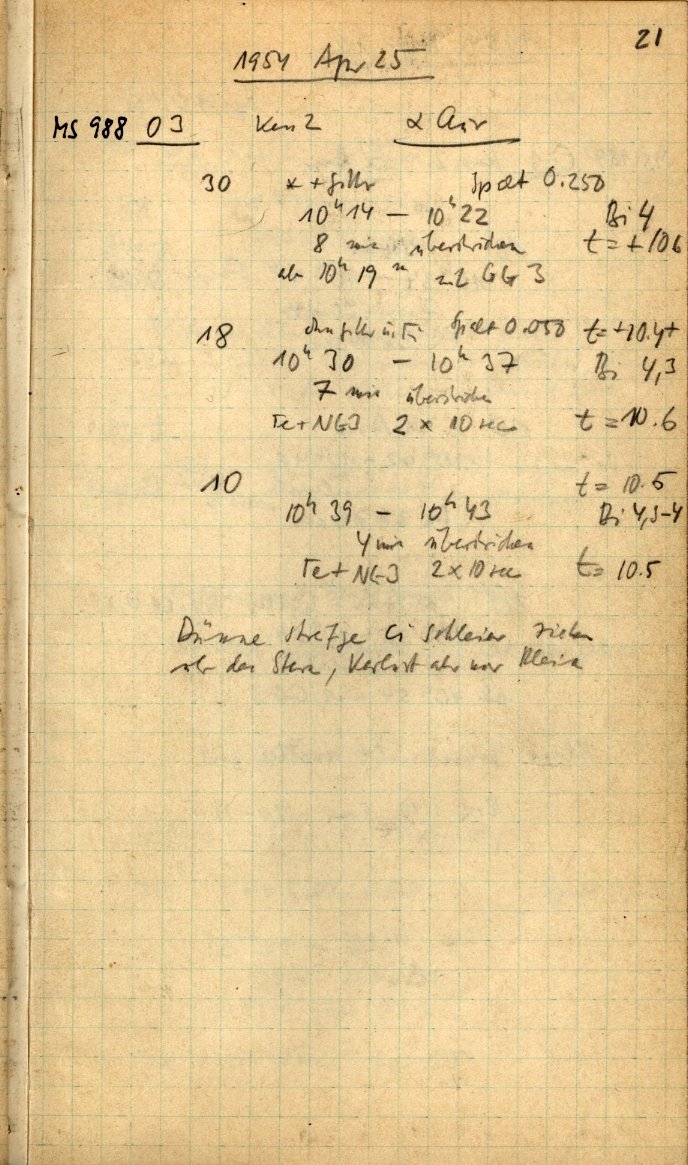 21
1954 Apr 25
MS 988 03 Ken 2 α Aur
30 * + Filter Spalt 0.250
10ʰ14 – 10ʰ22 Bi 4
8 min überstrichen t = +10.6
ab 10ʰ 19ᵐ mit GG 3
18 ohne Filter Spalt 0.050 t = +10.4
10ʰ 30 – 10ʰ 37 Bi 4,3
7 min überstrichen
Te + NG3 2 × 10 sec t = 10.6
10 t = 10.5
10ʰ 39 – 10ʰ 43 Bi 4,3-4
4 min überstrichen
Te + NG3 2 × 10 sec t = 10.5
Dünne streifige Ci Schleier ziehen
über den Stern, Verlust aber nur klein